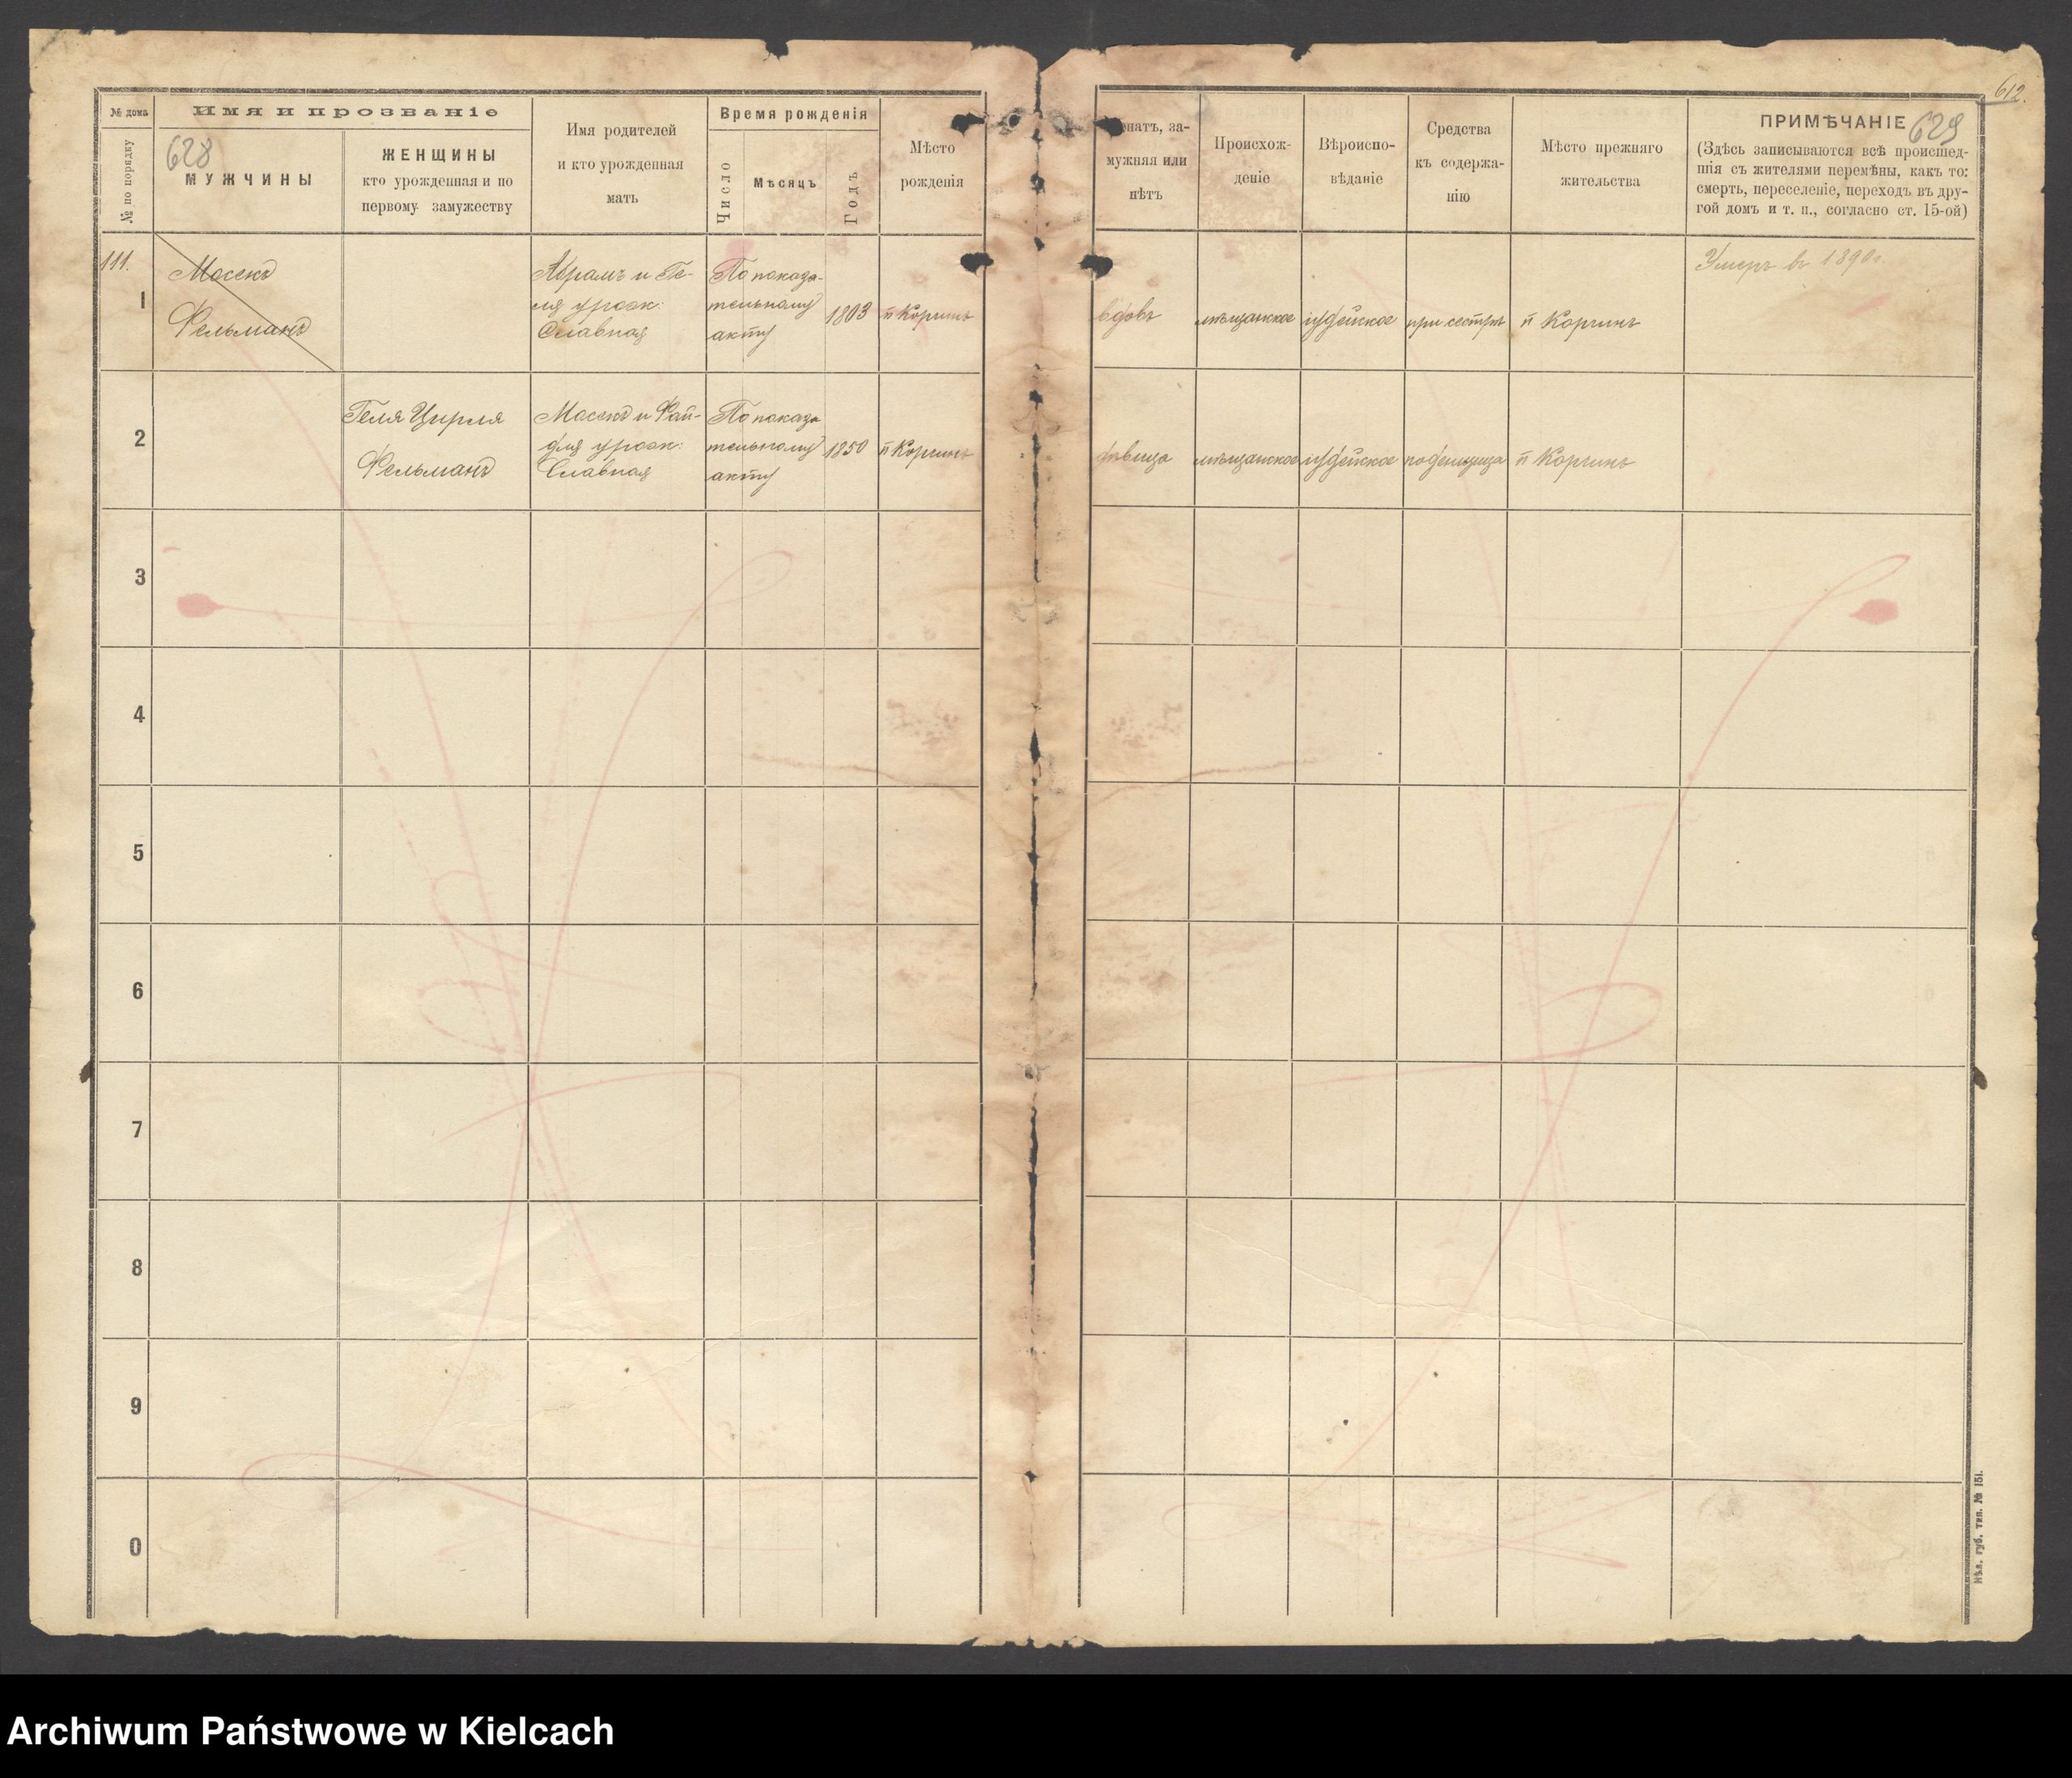 612.
№ дома
Имя и прозваніе
№ по порядку
628
МУЖЧИНЫ
ЖЕНЩИНЫ
кто урожденная и по
первому замужеству
Имя родителей
и кто урожденная
мать
Время рожденія
Число
Мѣсяцъ
Годъ
Мѣсто
рожденія
натъ, за-
мужняя или
нѣтъ
Происхож-
деніе
Вѣроиспо-
вѣданіе
Средства
къ содержа-
нію
Мѣсто прежняго
жительства
ПРИМѢЧАНІЕ
629
(Здѣсь записываются всѣ происшед-
шія съ жителями перемѣны, какъ то:
смерть, переселеніе, переходъ въ дру-
гой домъ и т. п., согласно ст. 15-ой)
111.
1
Мосекъ
Фельманъ
Абрамъ и Ге-
ля урож:
Славная
По показа-
тельному
акту
1803
п Корчинъ
вдовъ
мѣщанское
іудейское
при сестрѣ
п Корчинъ
Умеръ въ 1890г.
2
Геля Цирля
Фельманъ
Мосекъ и Фай-
для урож:
Славная
По показа
тельному
акту
1850
п Корчинъ
дѣвица
мѣщанское
іудейское
поденщица
п Корчинъ
3
4
5
6
7
8
9
0
Кѣл. губ. тип. № 151.
Archiwum Państwowe w Kielcach